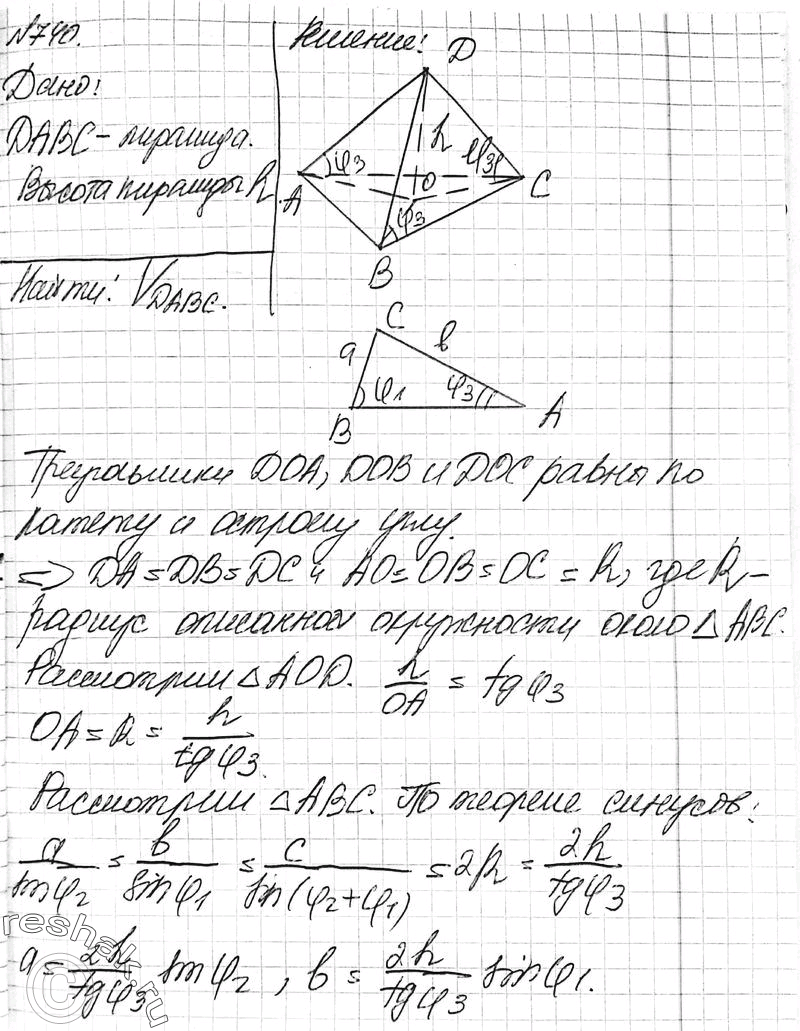 №740.
Решение:
Дано:
DABC – пирамида.
Высота пирамиды h.
Найти: V_DABC.
D
h
φ3
φ3
A
O
C
φ3
B
C
a
b
φ1
φ3
B
A
Треугольники DOA, DOB и DOC равны по
катету и острому углу.
=> DA = DB = DC и AO = OB = OC = R, где R –
радиус описанной окружности около △ABC.
Рассмотрим △AOD. h/OA = tgφ3
OA = R = h/tgφ3.
Рассмотрим △ABC. По теореме синусов:
a/sinφ2 = b/sinφ1 = c/sin(φ2+φ1) = 2R = 2h/tgφ3
a = 2h/tgφ3 sinφ2, b = 2h/tgφ3 sinφ1.
reshak.ru
©